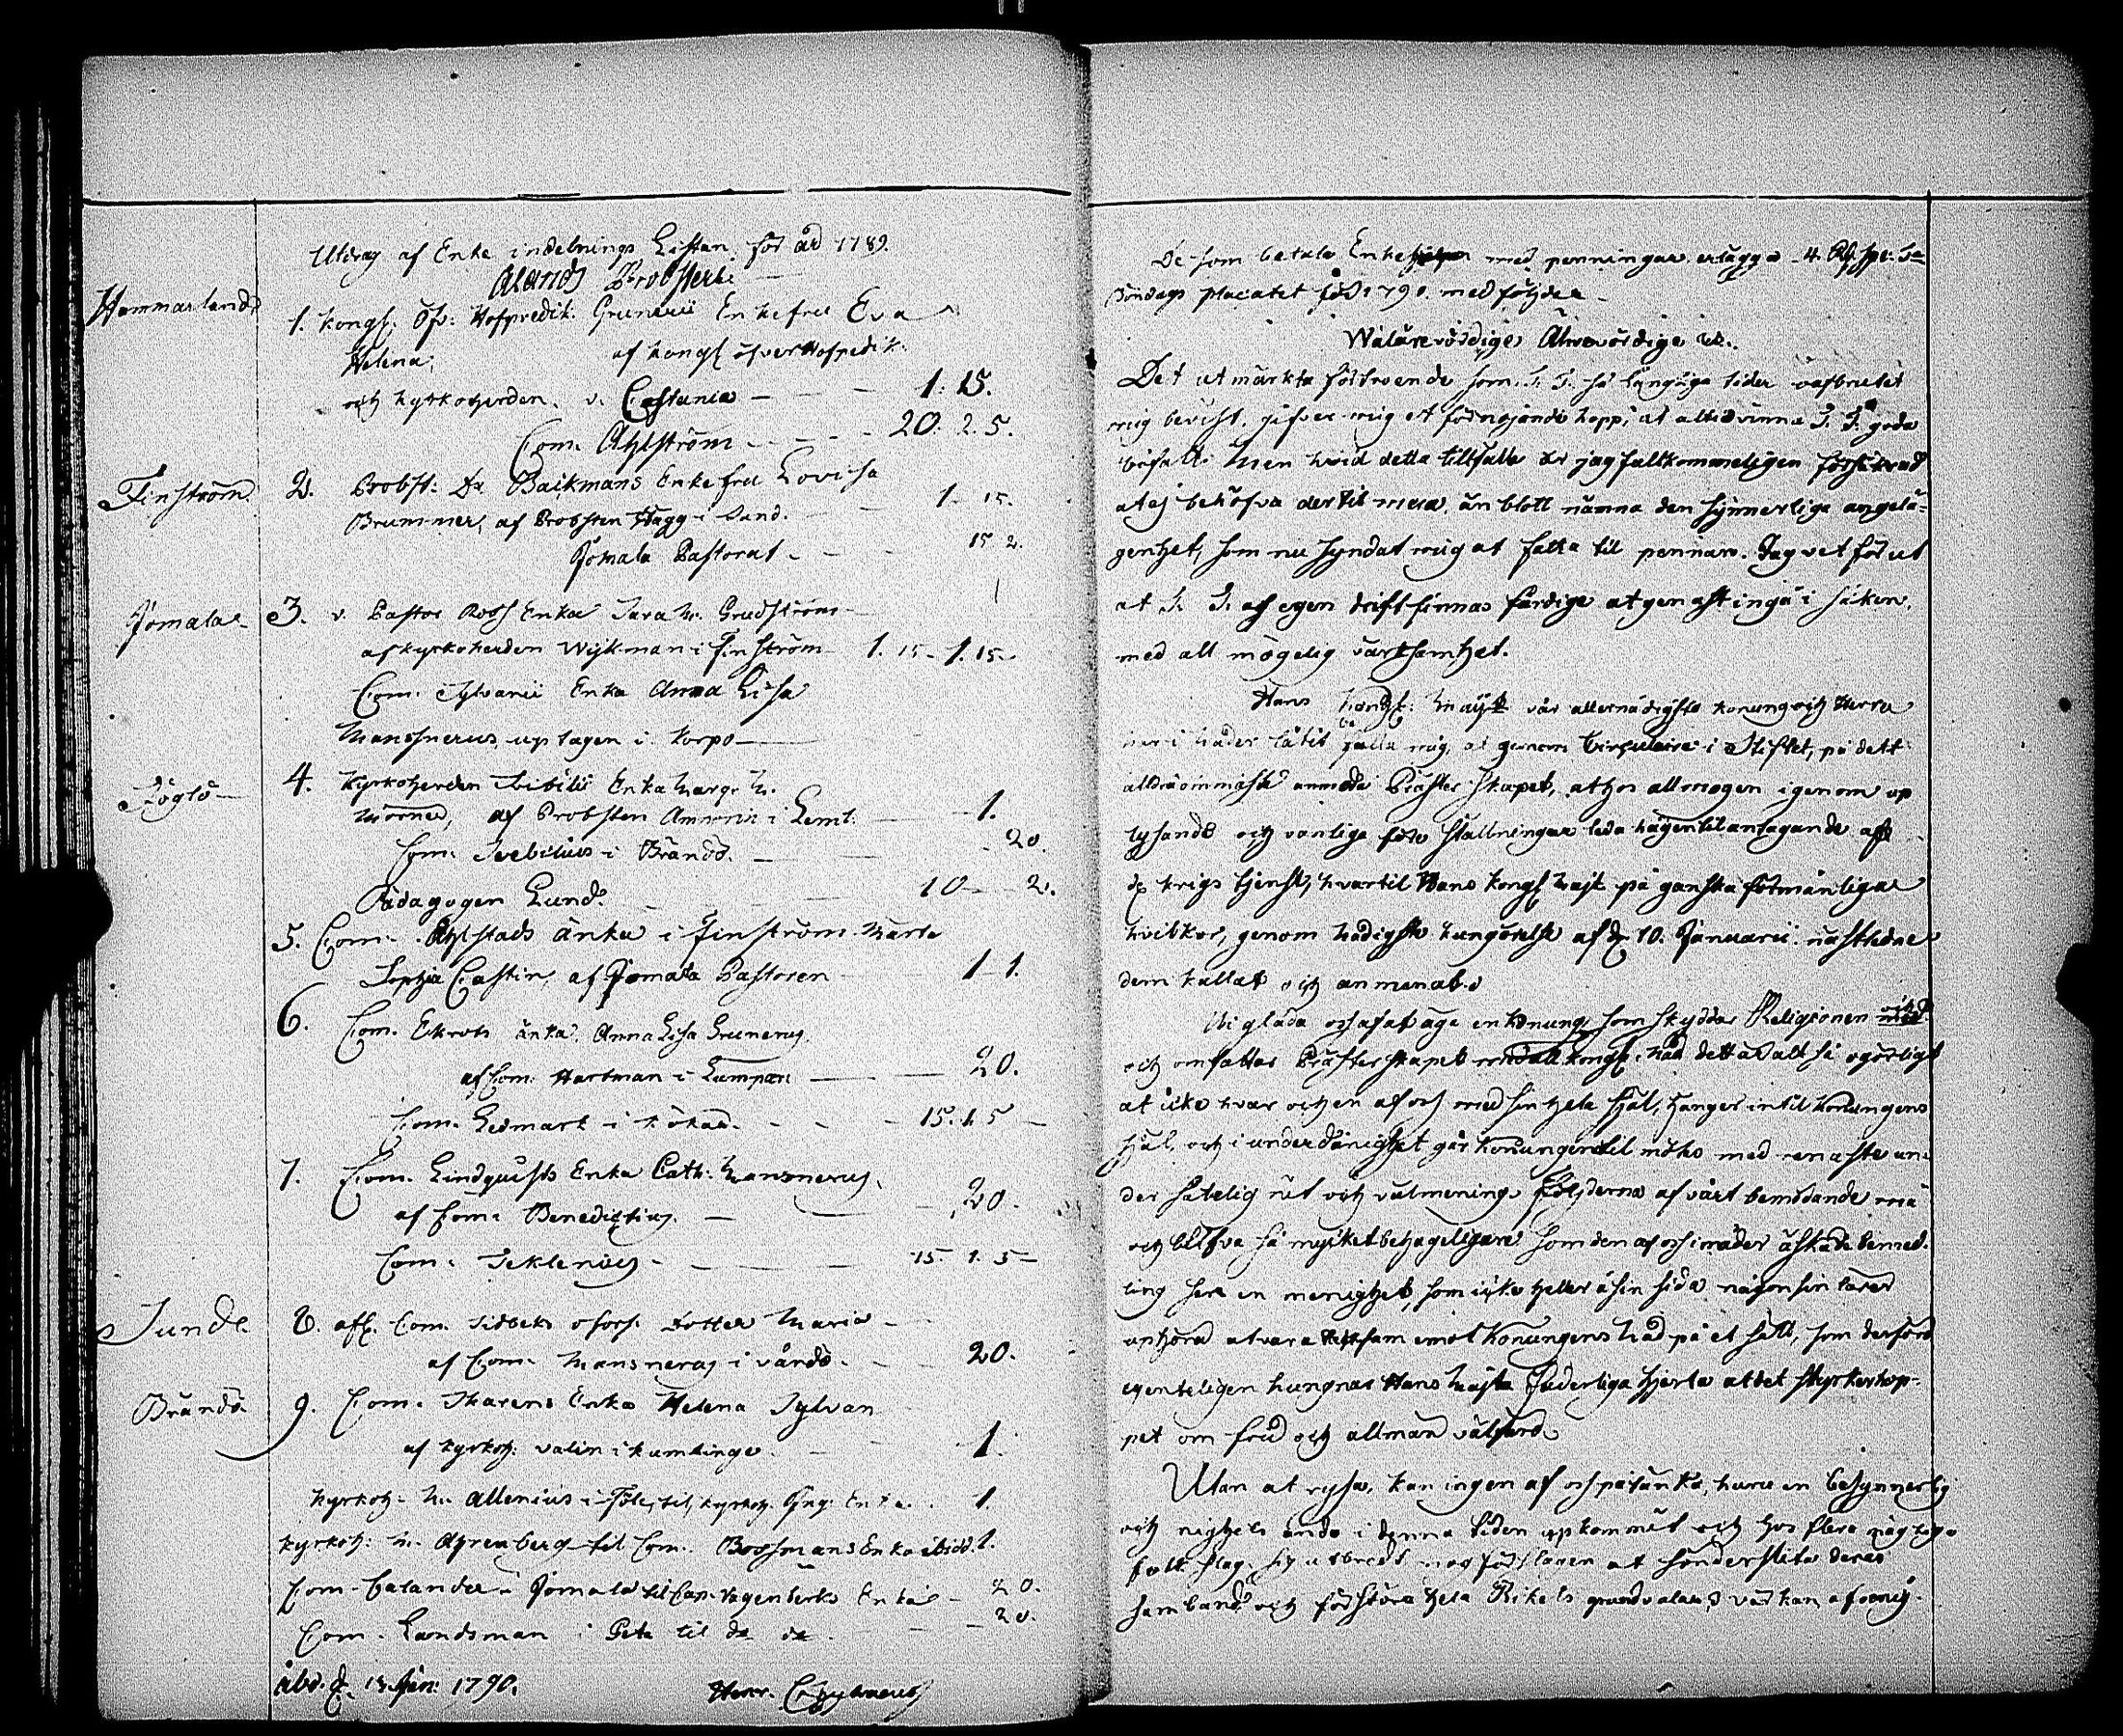 Utdrag af Enke indelnings Listan för år 1789.
Ålands Probsteri.
Hammarland
1. Kongl: Öfv: Hofpredik: Grunerii Enkefru Eva
Helena, af Kongl öfverHofpredik:
och Kyrkoherden v. Castania — 1: 15.
Com. Ahlström — 20. 2. 5.
Finström
2. Probst: Dr Backmans Enkefru Lovisa
Brummer, af Probsten Hagg i Sund. — 1 15.
Jomala Pastorat — 15 2.
Jomala
3. v. Pastor Enka Sara M. Grudström
af Kyrkoherden Wijkman i Finström — 1. 15 — 1. 15
Com. Sylvanii Enka Anna Lisa
Mansnerus, uptagen i Korpo —
Föglö
4. Kyrkoherden Enka Margr: M.
af Probsten Amnorin i Leml: — 1.
Com. i Brändö. — 20.
Pädagogen Lund. — 10 — 2.
5. Com. Ahlstads änka i Finström Maria
Sophia Castin, af Jomala Pastoren — 1 1.
6. Com. Ekrots änka Anna Lisa Grunerus
af Com. Hartman i Lumpar. — 20.
Com. Ledmark i Kökar. — 15. 1. 5 —
7. Com. Lindquists Enka Cath: Mansnerus,
af Com. Benedictius. — 20.
Com. Seklenius. — 15. 1. 5 —
Sund.
8. afl. Com. Sidbeks oförs. Dotter Maria —
af Com. Mansnerus i Vårdö. — 20.
Brändö
9. Com. Skarens Enka Helena Sylvan
af Kyrkoh: Valin i Kumlinge — 1.
Kyrkoh: M. Allenius i til Kyrkoh. Enka. 1.
Kyrkoh: M. Ahrenberg til Com. Bosmans Enka ibid: 1.
Com. Calander i Jomala til Cap. Enka — 20.
Com. Landsman i Geta til do do — 20.
Åbo d. 13 Jan: 1790.
De som betala Enkehjelpen med penningar erlägga 4 Rd. spe:
Böndags placatet för 1790. med följde
Wälärevördige, Ährevördige &c.
Det utmärkta förtroende som I. I. så långliga tider oafbrutet
mig bevist, gifver mig et förnöjande hopp, at altid vinna I. I. goda
bifall. Men hvid detta tillfälle är jag fullkommeligen försäkrad
at ej behöfva dertil mera än blott nämna den synnerliga angelä-
genhet, som nu skyndat mig at fatta til pennan. Jag vet förut
at I. I. af egen drift finnas färdige at genast ingå i saken,
med all mögelig varksamhet.
Hans Kongl: Majt vår allernådigste Konung och Herre
har i Nåder låtit befalla mig, at genom Circulaire i Stiftet, på dett
alldraömmaste anmoda Prästerskapet, at hos allmogen igenom up
lysande och vanliga föreställningar leda hågen til antagande af
krigs tjenst, hvartil Hans Kongl Majt på ganska förmånliga
hvilkor, genom Nådigste Kungörelse af d. 10. Januarii nästledne
dem kallat och anmanat.
Vi gläda oss af at äga en Konung som skyddar Religionen
och omfattar Prästerskapet med all Kongl. Nåd, detta är alt så ogörligt
at icke hvar och en af oss med sin hela själ, hänger intil Konungens
själ, och i underdånighet går Konungen til möte med renaste un-
dersåtelig nit och välmening. Följderna af vårt bemödande må
och blifva så mycket behageligare som den af oss i nåder äskade bemed-
ling sker en menighet, som icke heller å sin sida någonsin lärer
uphöra at vara tacksam emot Konungens Nåd på et sätt, som derföre
egenteligen hugnar Hans Majts Faderliga hjerta at det styrker hop-
pet om frid och allmän välfärd.
Utan at rysa, kan ingen af oss påtänka, huru en besynnerlig
och nighets anda i denna tiden upkommit och hos flere mägtige
folkslag, sig utbredt med förslagen at sönderslita deras
samband och förstöra hela Rikets grundvalar,